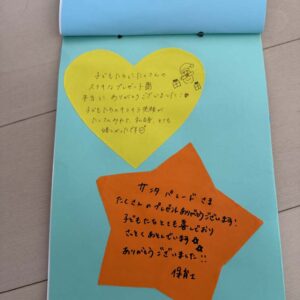 子どもたちにたくさんの
ステキなプレゼント
本当に ありがとうございました
子どもたちのキラキラ笑顔が
たくさんみれて、私達 とても
嬉しかったです
サンタ パレード さま
たくさんのプレゼントありがとうございます!
子どもたちとても喜んでおり
さっそくあそんでいます
ありがとうございました!!
保育士